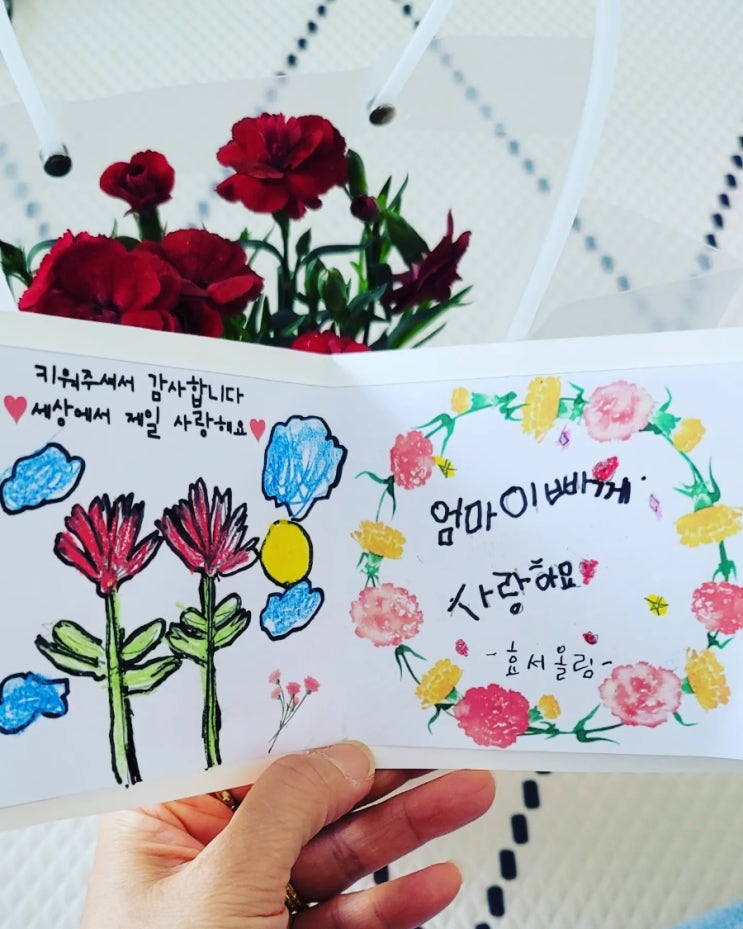 키워주셔서 감사합니다
세상에서 제일 사랑해요
엄마아빠께
사랑해요
-효서올림-